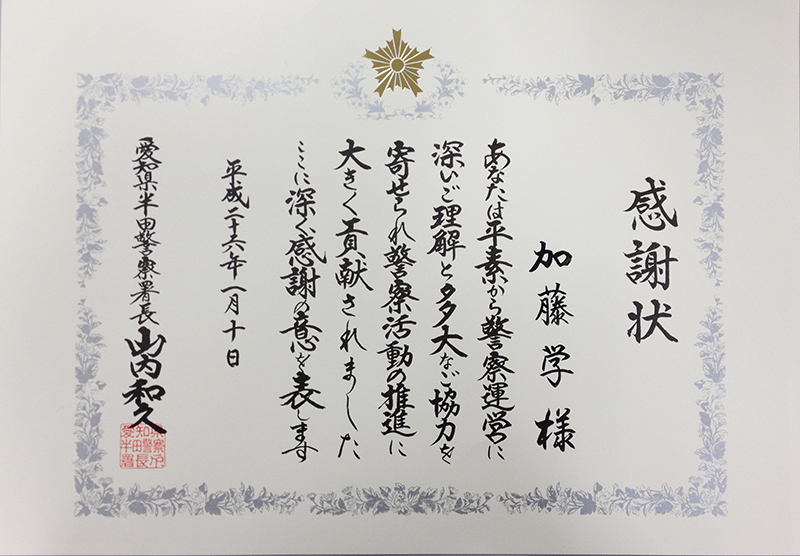 感謝状
加藤学様
あなたは平素から警察運営に
深いご理解と多大なご協力を
寄せられ警察活動の推進に
大きく貢献されました
ここに深く感謝の意を表します
平成二十六年一月十日
愛知県半田警察署長 山内和久